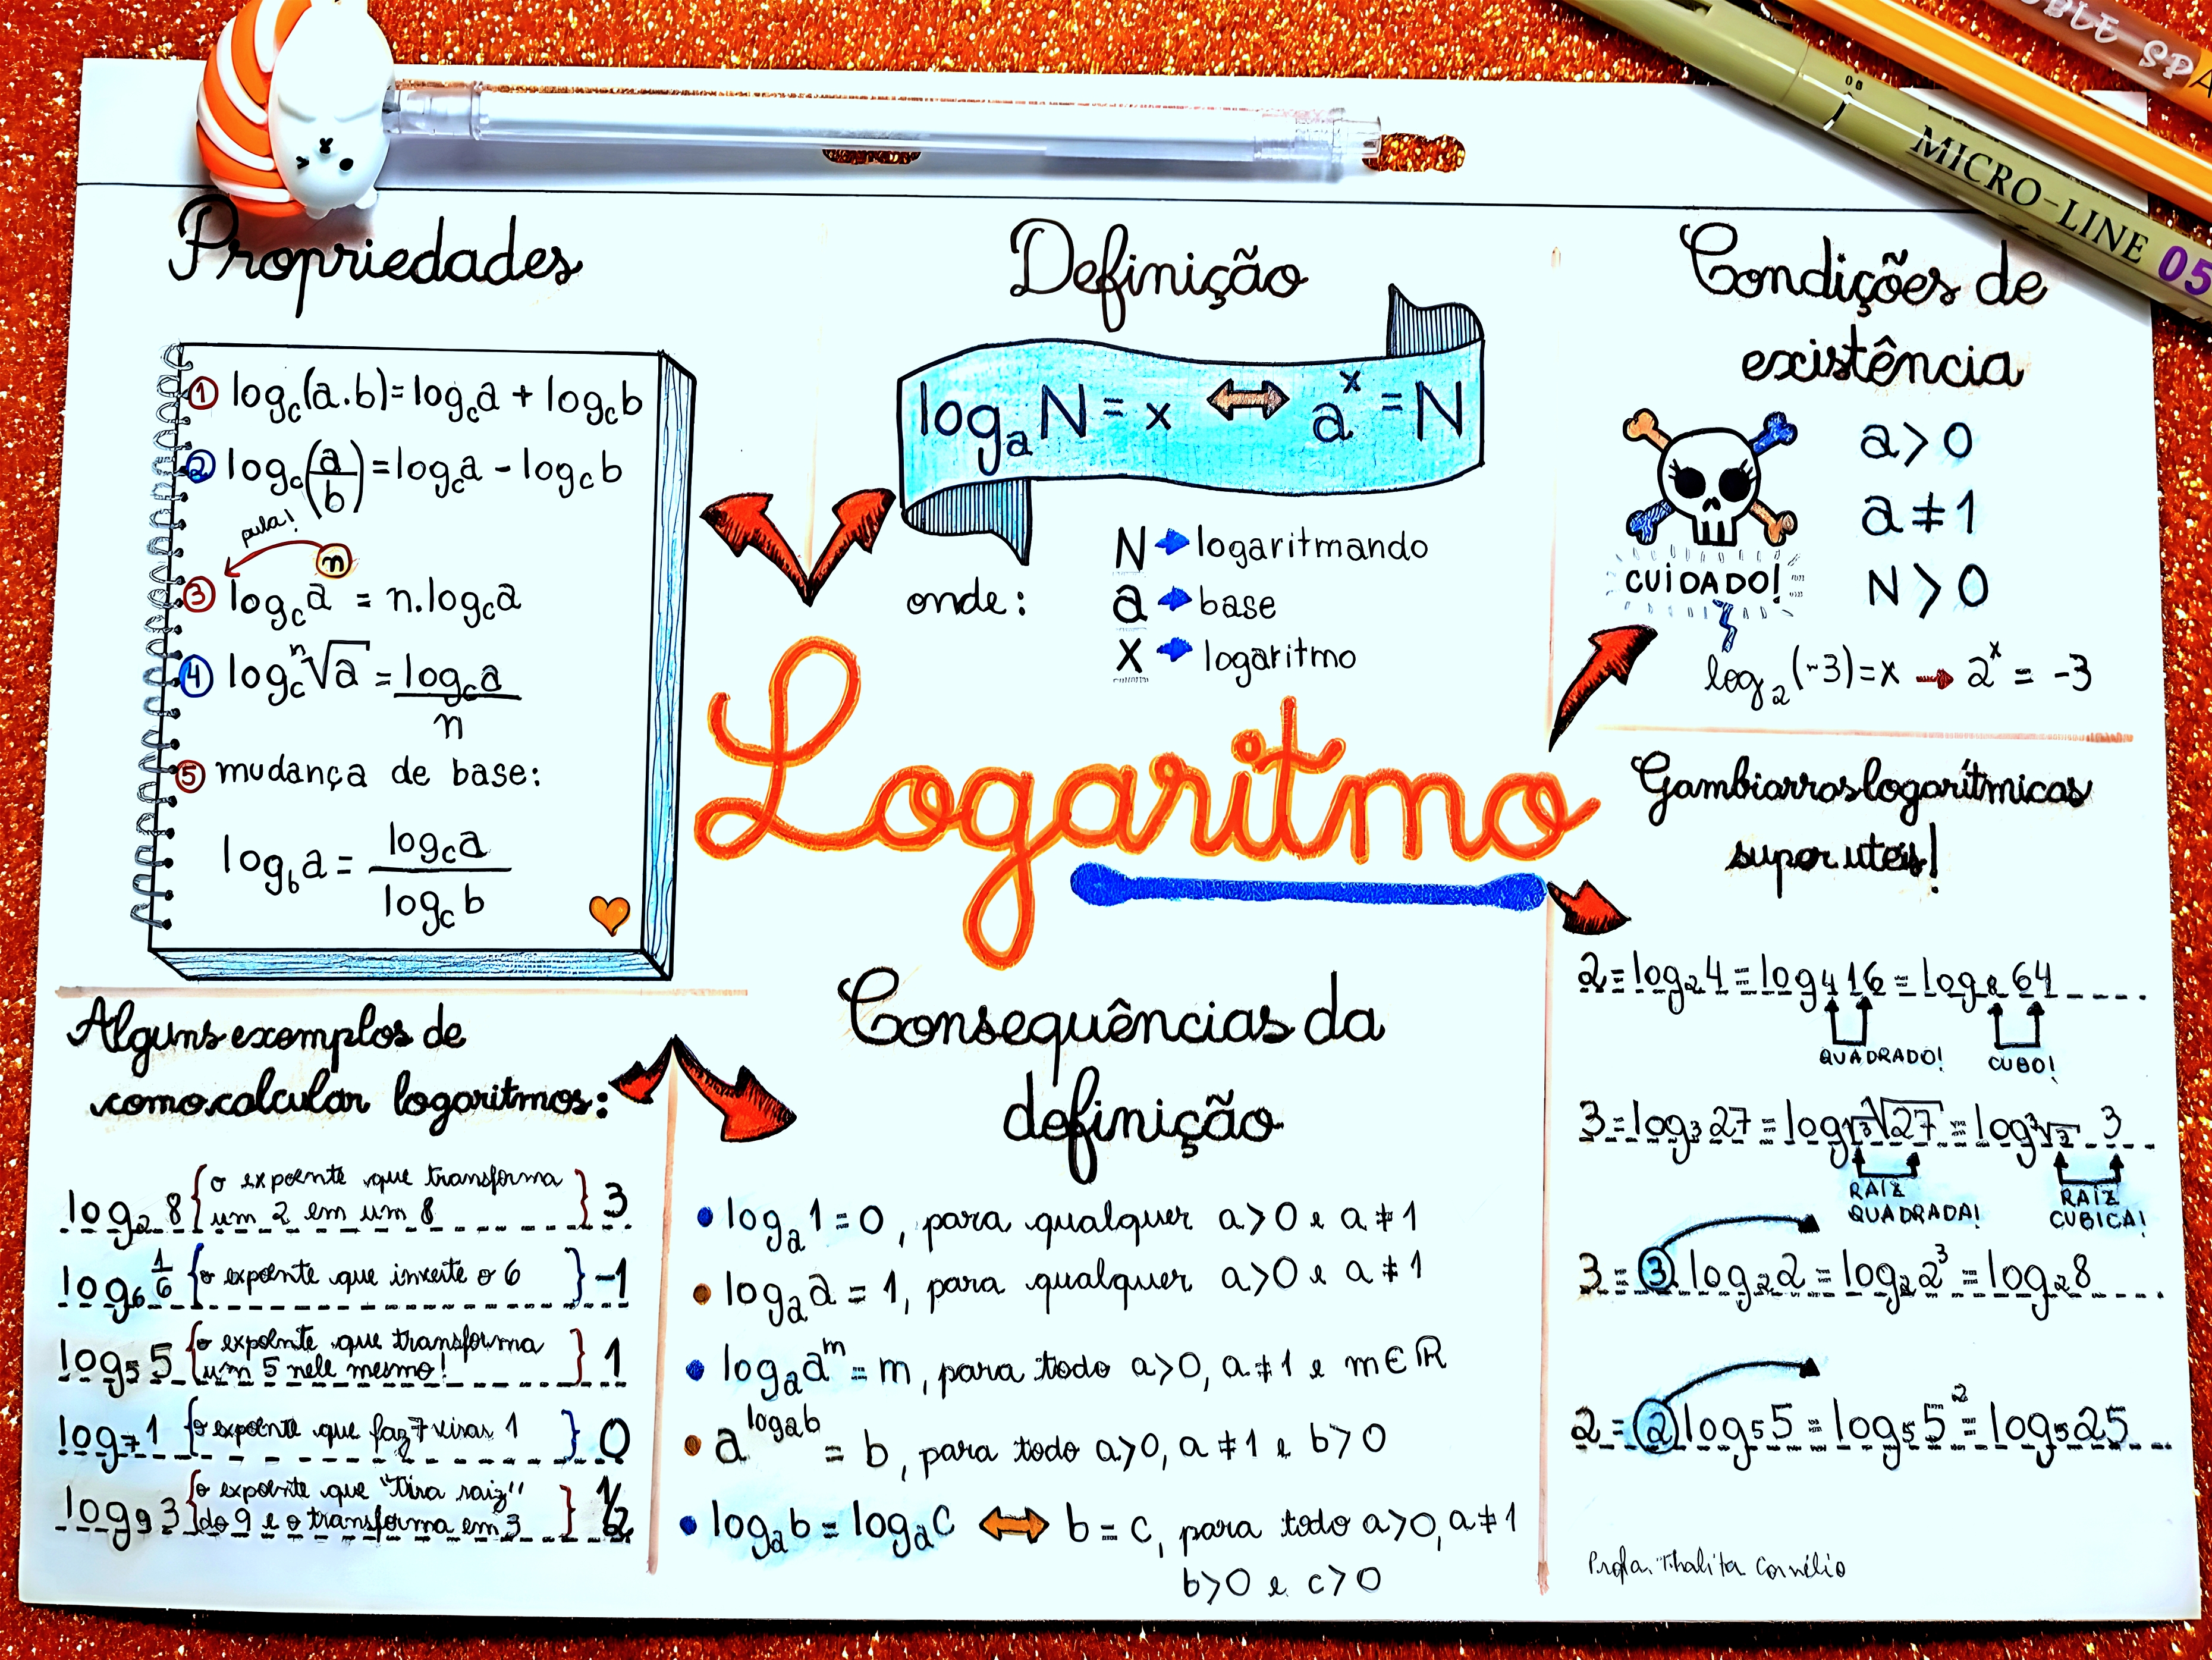 OBLE SPA
MICRO-LINE 05
Propriedades
① log_c(a.b)=log_c a + log_c b
② log_c(a/b)=log_c a - log_c b
pula!
③ log_c aⁿ = n.log_c a
④ log_c ⁿ√a = log_c a / n
⑤ mudança de base:
log_b a = log_c a / log_c b
Definição
log_a N = x ⇔ aˣ = N
onde:
N → logaritmando
a → base
x → logaritmo
Condições de
existência
a > 0
a ≠ 1
N > 0
CUIDADO!
log₂(-3)=x → 2ˣ = -3
Logaritmo
Gambiarras logarítmicas
super uteis!
2 = log₂4 = log₄16 = log₈64
QUADRADO!
CUBO!
3 = log₃27 = log√3 √27 = log³√3 3
RAIZ
QUADRADA!
RAIZ
CUBICA!
3 = 3.log₂2 = log₂2³ = log₂8
2 = 2log₅5 = log₅5² = log₅25
Alguns exemplos de
como calcular logaritmos:
log₂8 { o expoente que transforma
um 2 em um 8 } 3
log₆ 1/6 { o expoente que inverte o 6 } -1
log₅5 { o expoente que transforma
um 5 nele mesmo! } 1
log₇1 { o expoente que faz 7 virar 1 } 0
log₉3 { o expoente que "tira raiz"
do 9 e o transforma em 3 } 1/2
Consequências da
definição
• log_a 1 = 0, para qualquer a>0 e a≠1
• log_a a = 1, para qualquer a>0 e a≠1
• log_a aᵐ = m, para todo a>0, a≠1 e m∈ℝ
• a^(log_a b) = b, para todo a>0, a≠1 e b>0
• log_a b = log_a c ⇔ b = c, para todo a>0, a≠1
b>0 e c>0
Profa. Thalita Cornélio